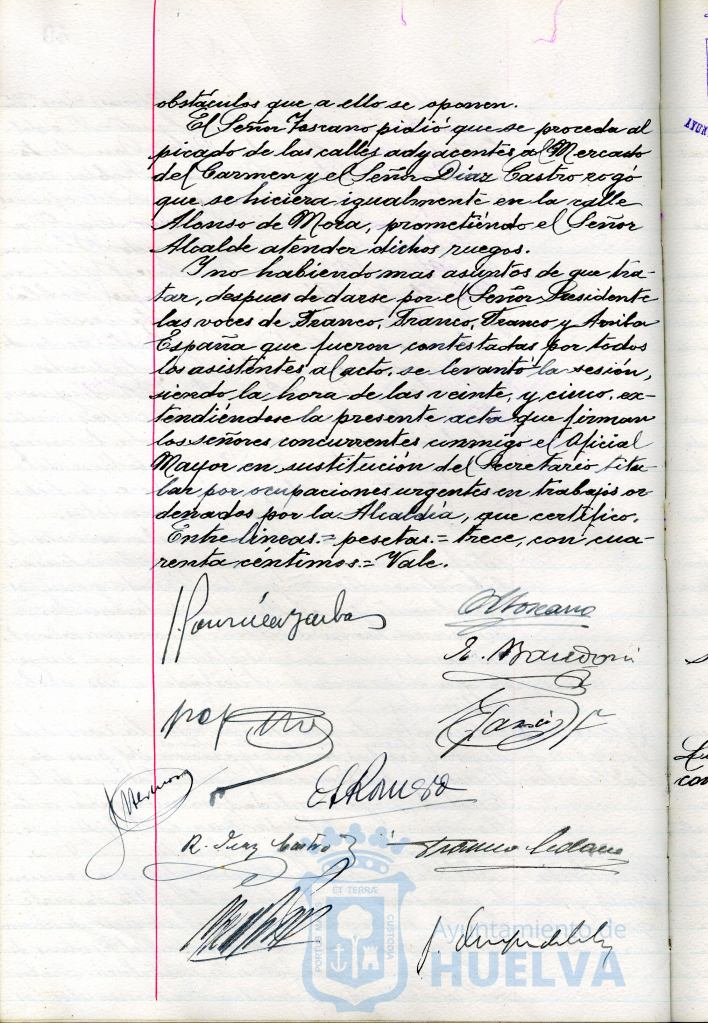 obstáculos que a ello se oponen.
El Señor Toscano pidió que se proceda al
picado de las calles adyacentes al Mercado
del Carmen y el Señor Díaz Castro rogó
que se hiciera igualmente en la calle
Alonso de Mora, prometiendo el Señor
Alcalde atender dichos ruegos.
Y no habiendo mas asuntos de que tra-
tar, despues de darse por el Señor Presidente
las voces de Franco, Franco, Franco y Arriba
España que fueron contestadas por todos
los asistentes al acto, se levantó la sesión,
siendo la hora de las veinte, y cinco, ex-
tendiéndose la presente acta que firman
los señores concurrentes conmigo el Oficial
Mayor en sustitución del Secretario titu-
lar por ocupaciones urgentes en trabajos or-
denados por la Alcaldía, que certifico.
Entre lineas.= pesetas.= trece, con cua-
renta céntimos.= Vale.
Toscano
E. Romero
R. Diaz Castro
ET TERRÆ
PORTUS MARIS
CUSTODIA
Ayuntamiento de
HUELVA